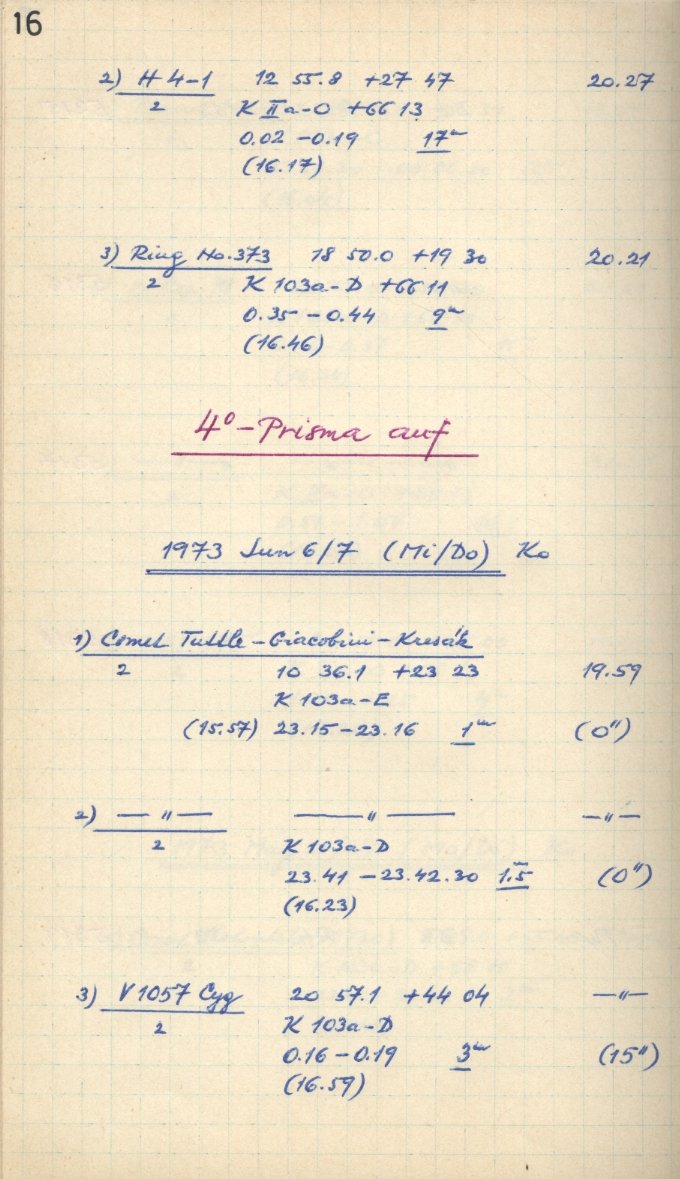 16
2) H 4-1 12 55.8 +27 47 20.27
2 K IIa-O +GG 13
0.02 - 0.19 17ᵐ
(16.17)
3) Ring No. 373 18 50.0 +19 30 20.21
2 K 103a-D +GG 11
0.35 - 0.44 9ᵐ
(16.46)
4°-Prisma auf
1973 Jun 6/7 (Mi/Do) Ko
1) Comet Tuttle-Giacobini-Kresák
2 10 36.1 +23 23 19.59
K 103a-E
(15.57) 23.15 - 23.16 1ᵐ (0")
2) — " — — " — — " —
2 K 103a-D
23.41 - 23.42.30 1.5ᵐ (0")
(16.23)
3) V 1057 Cyg 20 57.1 +44 04 — " —
2 K 103a-D
0.16 - 0.19 3ᵐ (15")
(16.59)